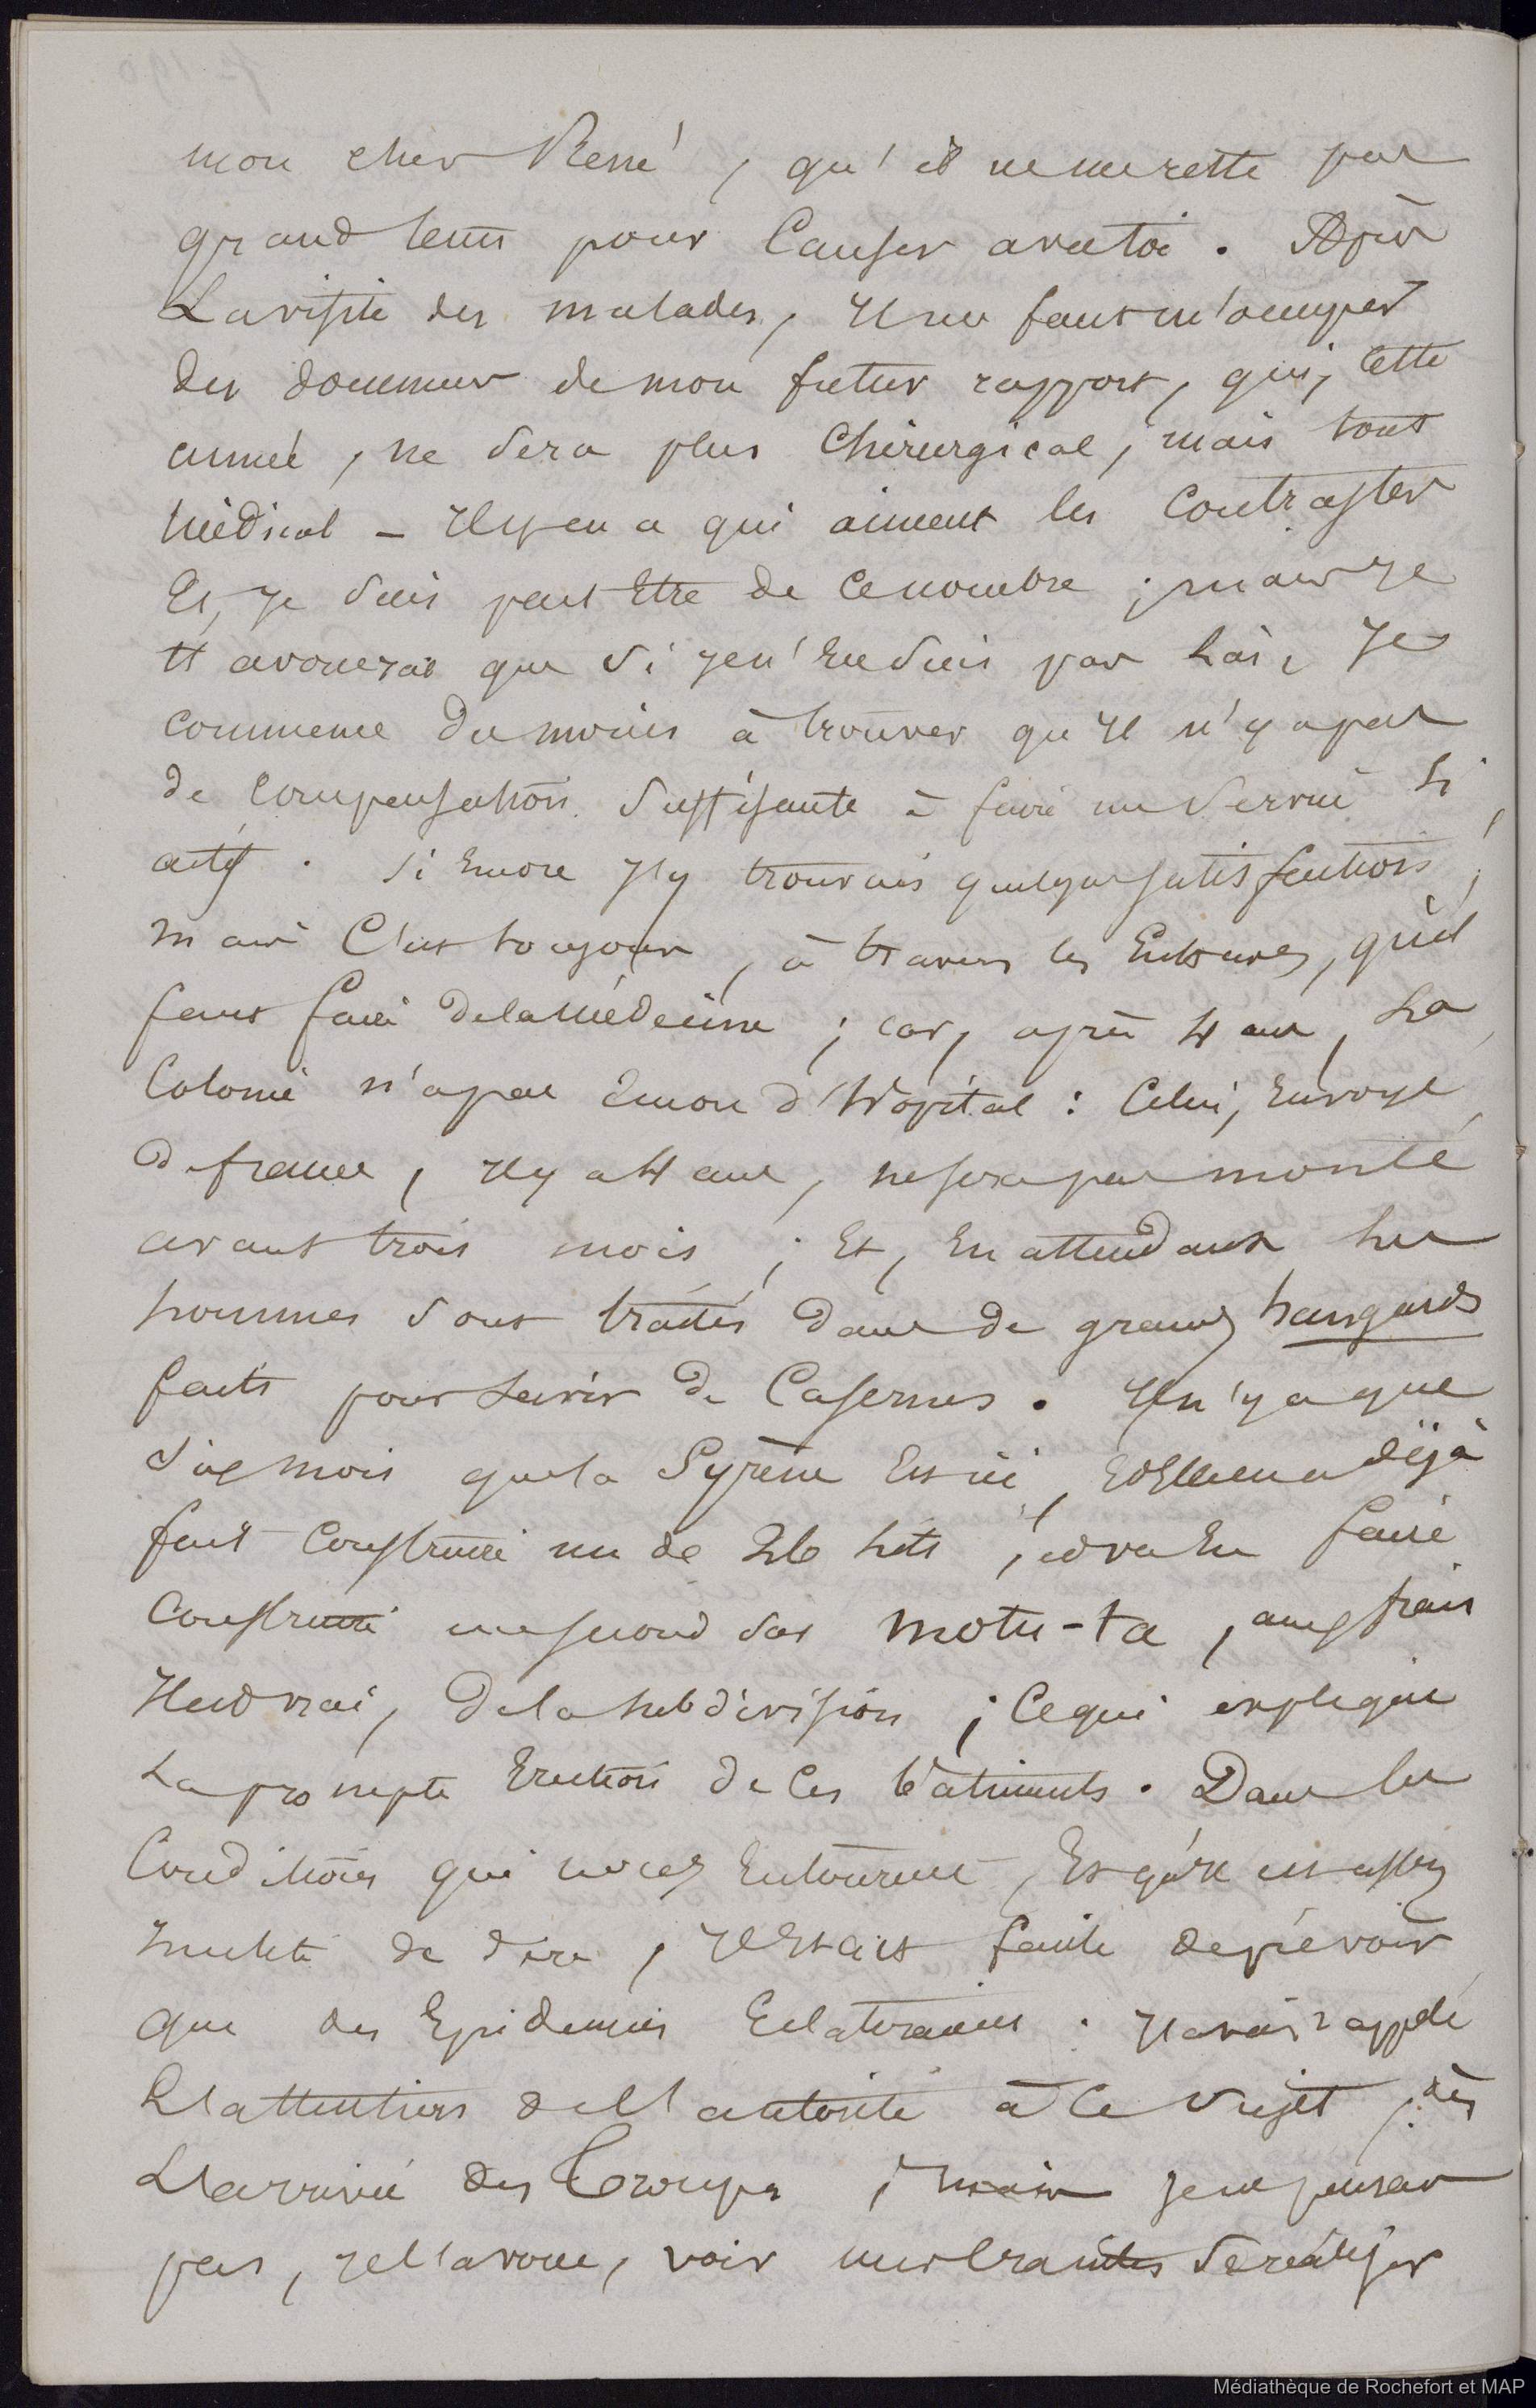 mon cher René, qu'il ne me reste pas
grand tems pour Causer avec toi. Après
La visite des malades, Il me faut m'occuper
des documens de mon futur rapport, qui, Cette
année, ne sera plus Chirurgical, mais tout
médical - Il y en a qui aiment les Contrastes
Et, je suis peut Etre de Ce nombre; mais je
t'avouerai que si je n'En suis pas Las, Je
commence du moins à trouver qu'Il n'y a pas
de Compensation suffisante à faire un service si
actif. Si Encore J'y trouvais quelque satisfaction;
mais C'est toujours, à travers les Entraves, qu'il
faut faire de la Médecine; car, après 4 ans, La
Colonie n'a pas Encore d'Hôpital: Celui, Envoyé
de france, Il y a 4 ans, ne sera pas monté
avant trois mois; Et, En attendant les
hommes sont traités dans de grands hangards
faits pour servir de Casernes. Il n'y a que
six mois que la Syrène Est ici, Et Elle en a déjà
fait Construire un de 26 lits, et va En faire
Construire un second sur Motu-ta, aux frais
Il est vrai, de la subdivision; Ce qui explique
La prompte Erection de Ces bâtiments. Dans les
Conditions qui nous Entourent, Et qu'Il est assez
Inutile de dire, Il Etait facile de prévoir
que des Epidemies Eclateraient. J'avais rappelé
L'attention de l'autorité à Ce sujet, dès
L'arrivée des Troupes; mais je ne pensais
pas, je l'avoue, voir mes craintes se réaliser
Médiathèque de Rochefort et MAP